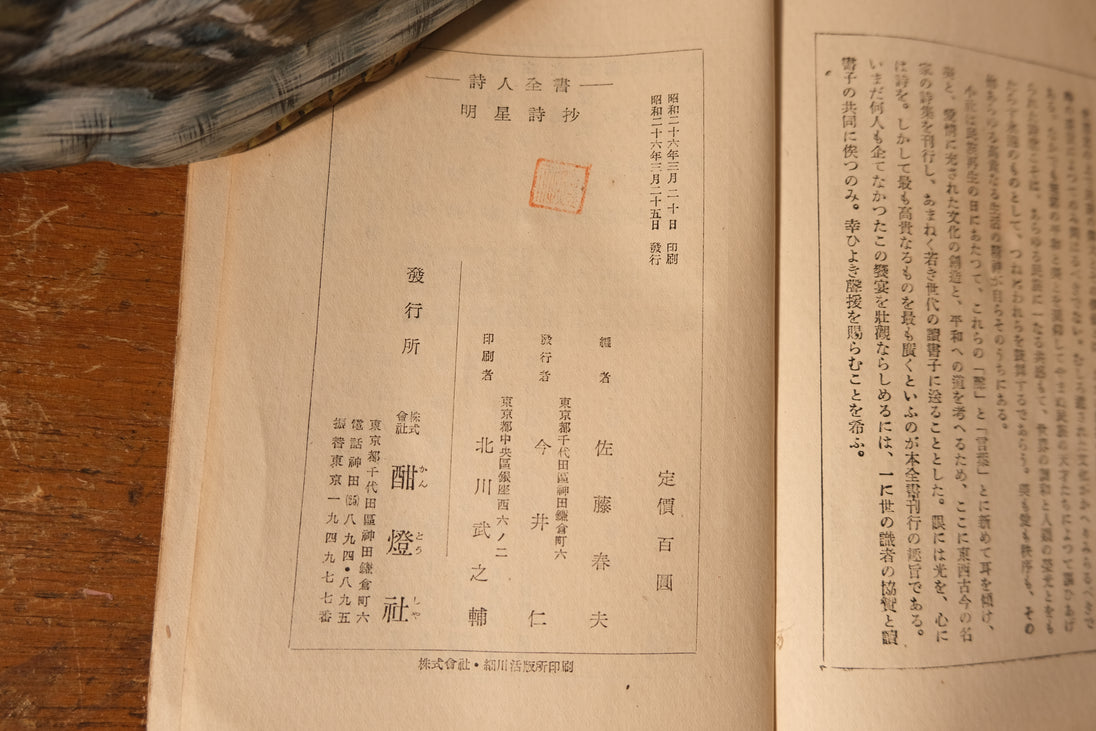 たらす永遠のものとして、つねにわれらを鼓舞するであらう。美も愛も秩序も、その
他あらゆる高貴なる生活の精神が自らそのうちにある。
小社は民族再生の日にあたつて、これらの「聲」と「言葉」とに新めて耳を傾け、
美と、愛情に充された文化の創造と、平和への道を考へるため、ここに東西古今の名
家の詩集を刊行し、あまねく若き世代の讀書子に送ることとした。眼には光を、心に
は詩を。しかして最も高貴なるものを最も廣くといふのが本全書刊行の趣旨である。
いまだ何人も企てなかつたこの饗宴を壯觀ならしめるには、一に世の識者の協賛と讀
書子の共同に俟つのみ。幸ひよき聲援を賜らむことを希ふ。
詩人全書
明星詩抄
昭和二十六年三月二十日 印刷
昭和二十六年三月二十五日 發行
定價百圓
編者 佐藤春夫
東京都千代田區神田鎌倉町六
發行者 今井仁
東京都中央區銀座西六ノ二
印刷者 北川武之輔
發行所 株式會社 酣燈社
かん とう しや
東京都千代田區神田鎌倉町六
電話神田(25)八九四・八九五
振替東京一九四九七七番
株式會社・細川活版所印刷